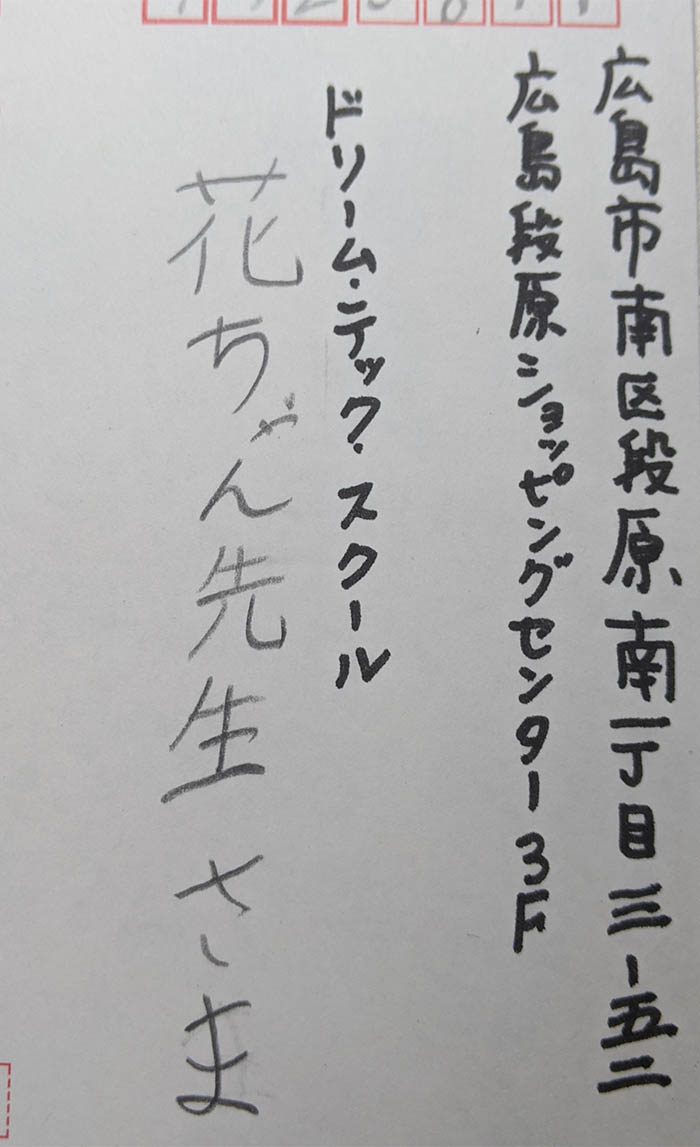 広島市南区段原南一丁目三-五二
広島段原ショッピングセンター3F
ドリーム・テック・スクール
花ちゃん先生さま